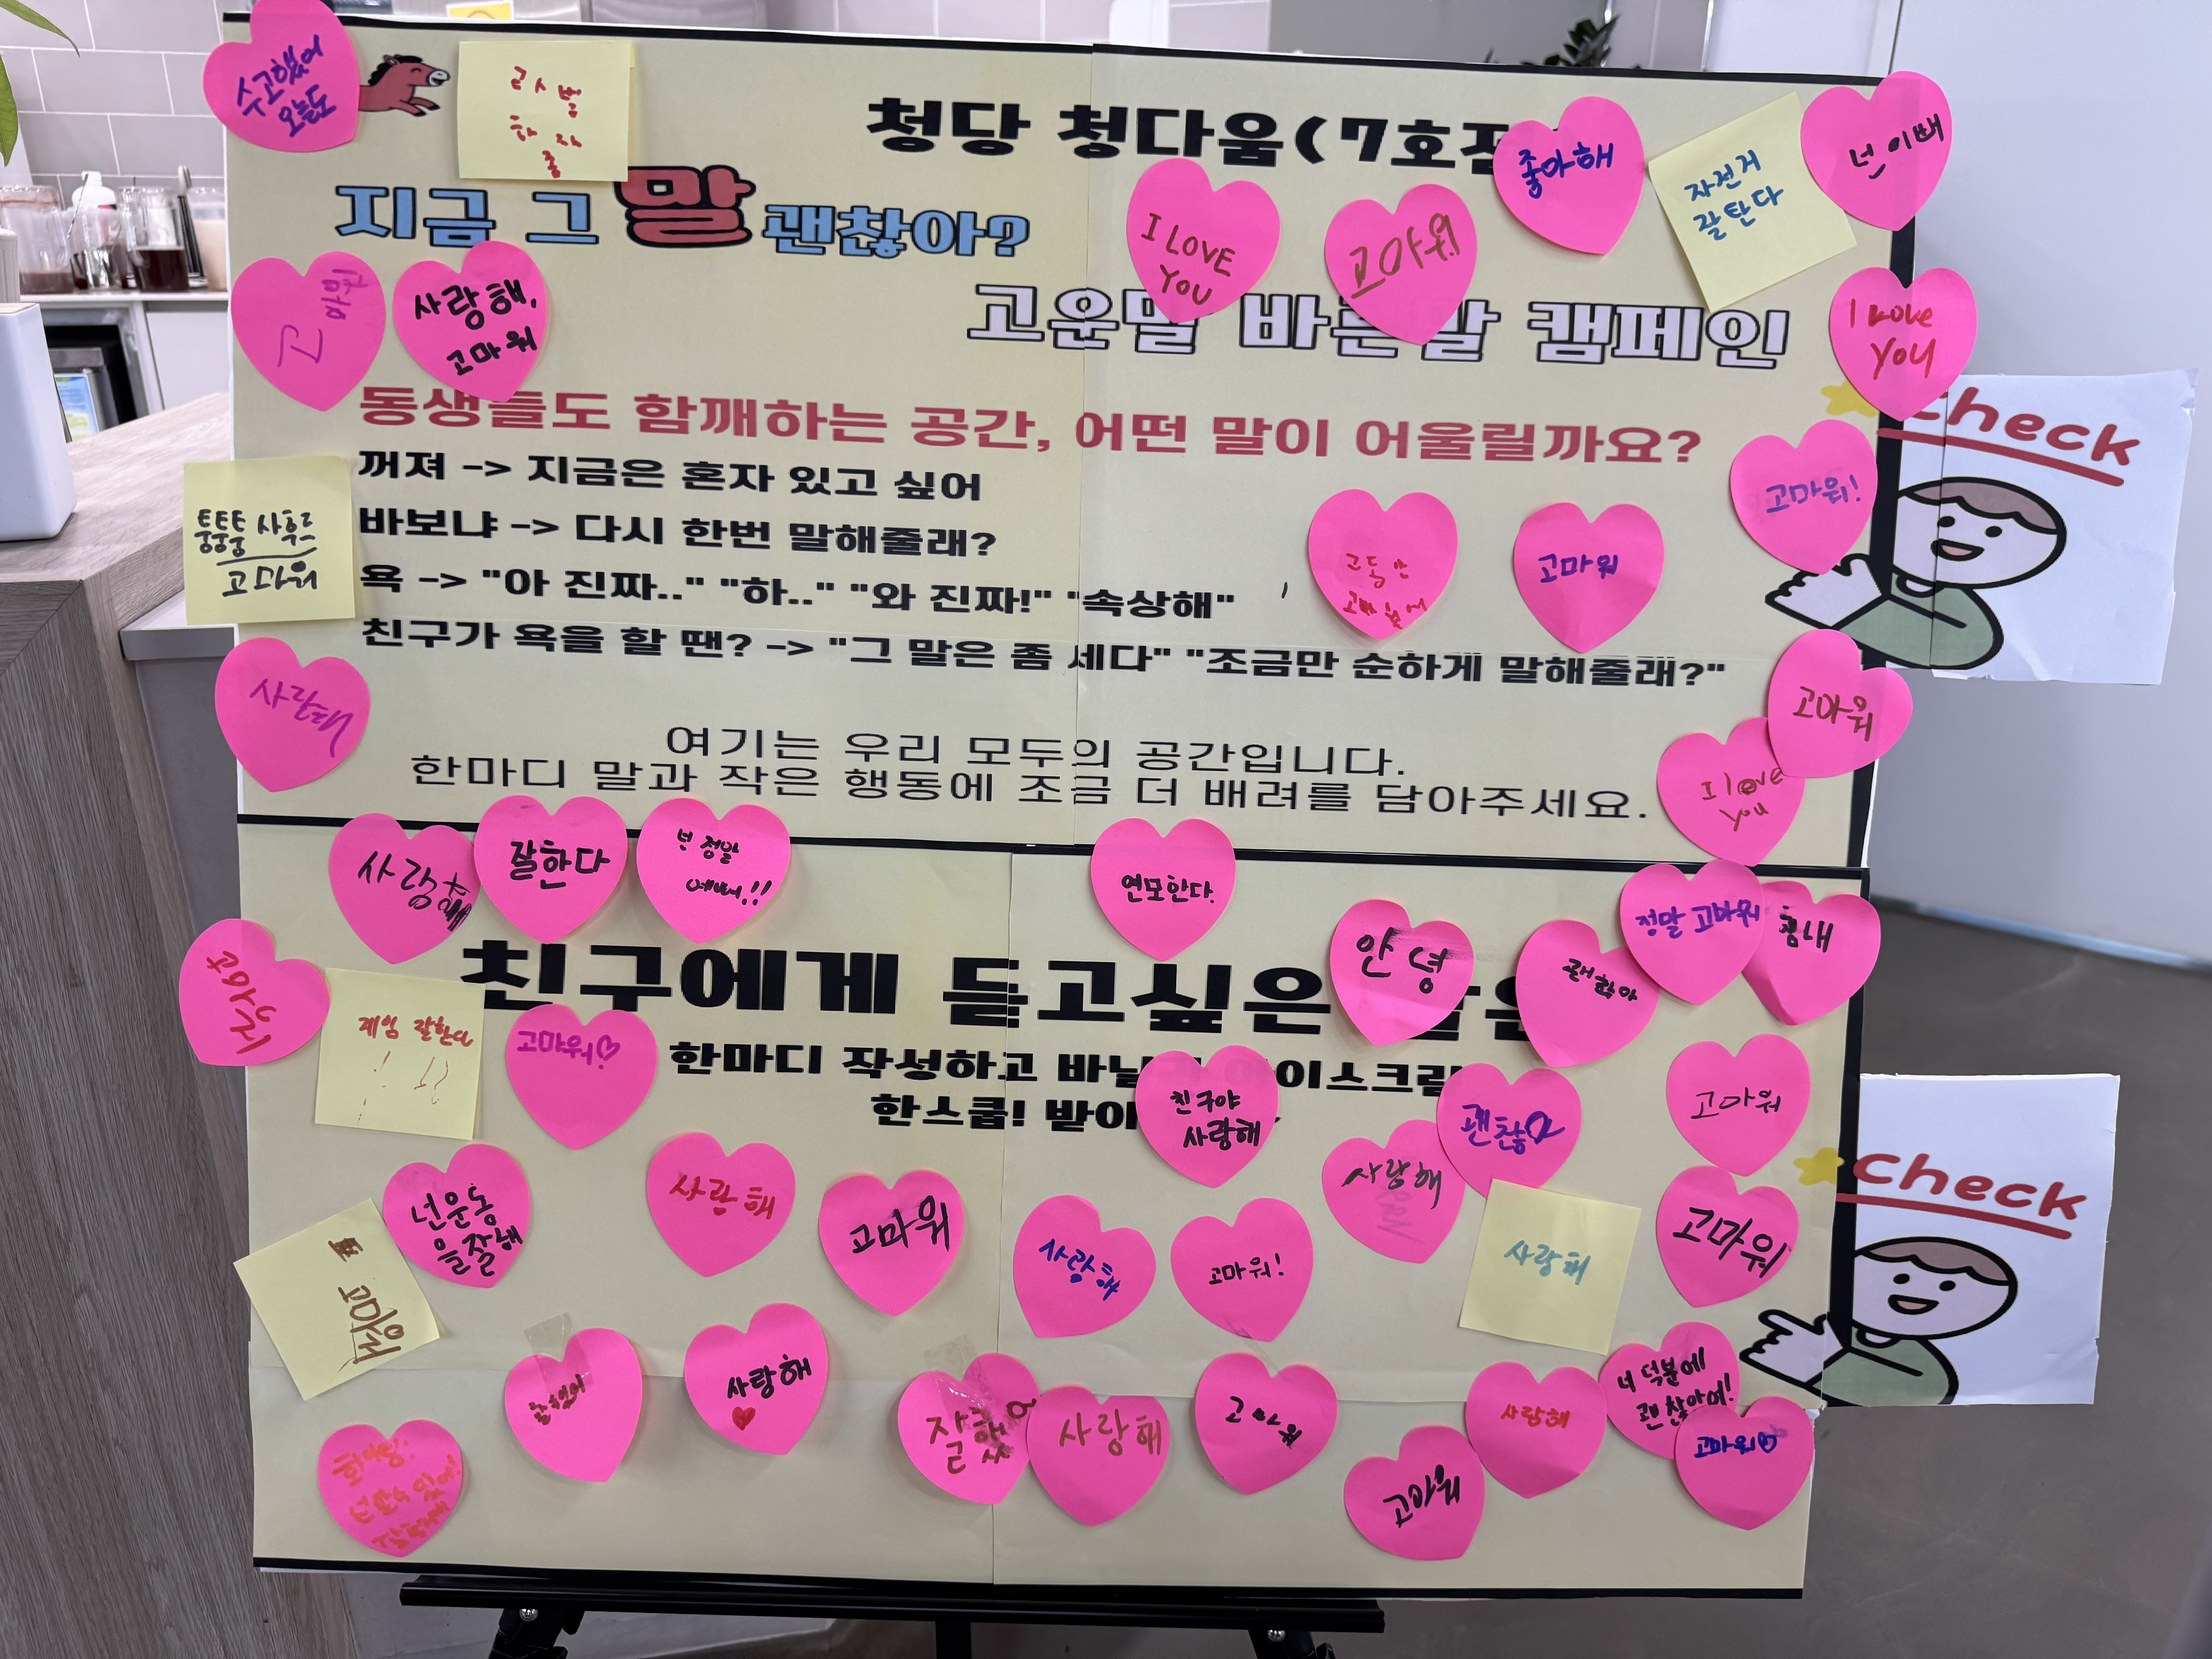 수고했어
오늘도
청당 청다움(7호점
좋아해
자전거
잘탄다
넌 이뻐
지금 그 말 괜찮아?
I LOVE
YOU
고마워
고
마워
사랑해,
고마워
고운말 바른말 캠페인
I Love
you
동생들도 함께하는 공간, 어떤 말이 어울릴까요?
check
꺼져 -> 지금은 혼자 있고 싶어
고마워!
퉁퉁퉁 사후르
고마워
바보냐 -> 다시 한번 말해줄래?
고마워
욕 -> "아 진짜.." "하.." "와 진짜!" "속상해"
친구가 욕을 할 땐? -> "그 말은 좀 세다" "조금만 순하게 말해줄래?"
사랑해
고마워
여기는 우리 모두의 공간입니다.
한마디 말과 작은 행동에 조금 더 배려를 담아주세요.
I love
you
사랑해
잘한다
넌 정말
예뻐!!
연모한다.
안녕
괜찮아
정말 고마워
힘내
고마워
친구에게 듣고싶은 말은
게임 잘한다
고마워♡
한마디 작성하고 바닐라 아이스크림
한스쿱! 받아
친구야
사랑해
괜찮아
고마워
넌운동
을잘해
사랑해
고마워
사랑해
고마워!
사랑해
사랑해
고마워
check
고마워
사랑해
잘했어
사랑해
고마워
고마워
사랑해
너 덕분에
괜찮아여!
고마워♡